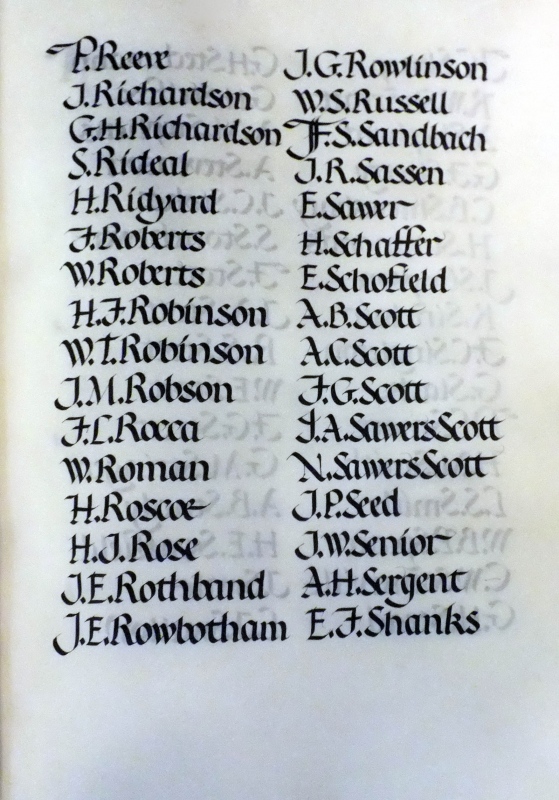 P.Reeve
J.Richardson
G.H.Richardson
S.Rideal
H.Ridyard
F.Roberts
W.Roberts
H.F.Robinson
W.T.Robinson
J.M.Robson
F.L.Rocca
W.Roman
H.Roscoe
H.J.Rose
J.E.Rothband
J.E.Rowbotham
J.G.Rowlinson
W.S.Russell
F.S.Sandbach
J.R.Sassen
E.Sawer
H.Schaffer
E.Schofield
A.B.Scott
A.C.Scott
F.G.Scott
J.A.SawersScott
N.SawersScott
J.P.Seed
J.W.Senior
A.H.Sergent
E.F.Shanks